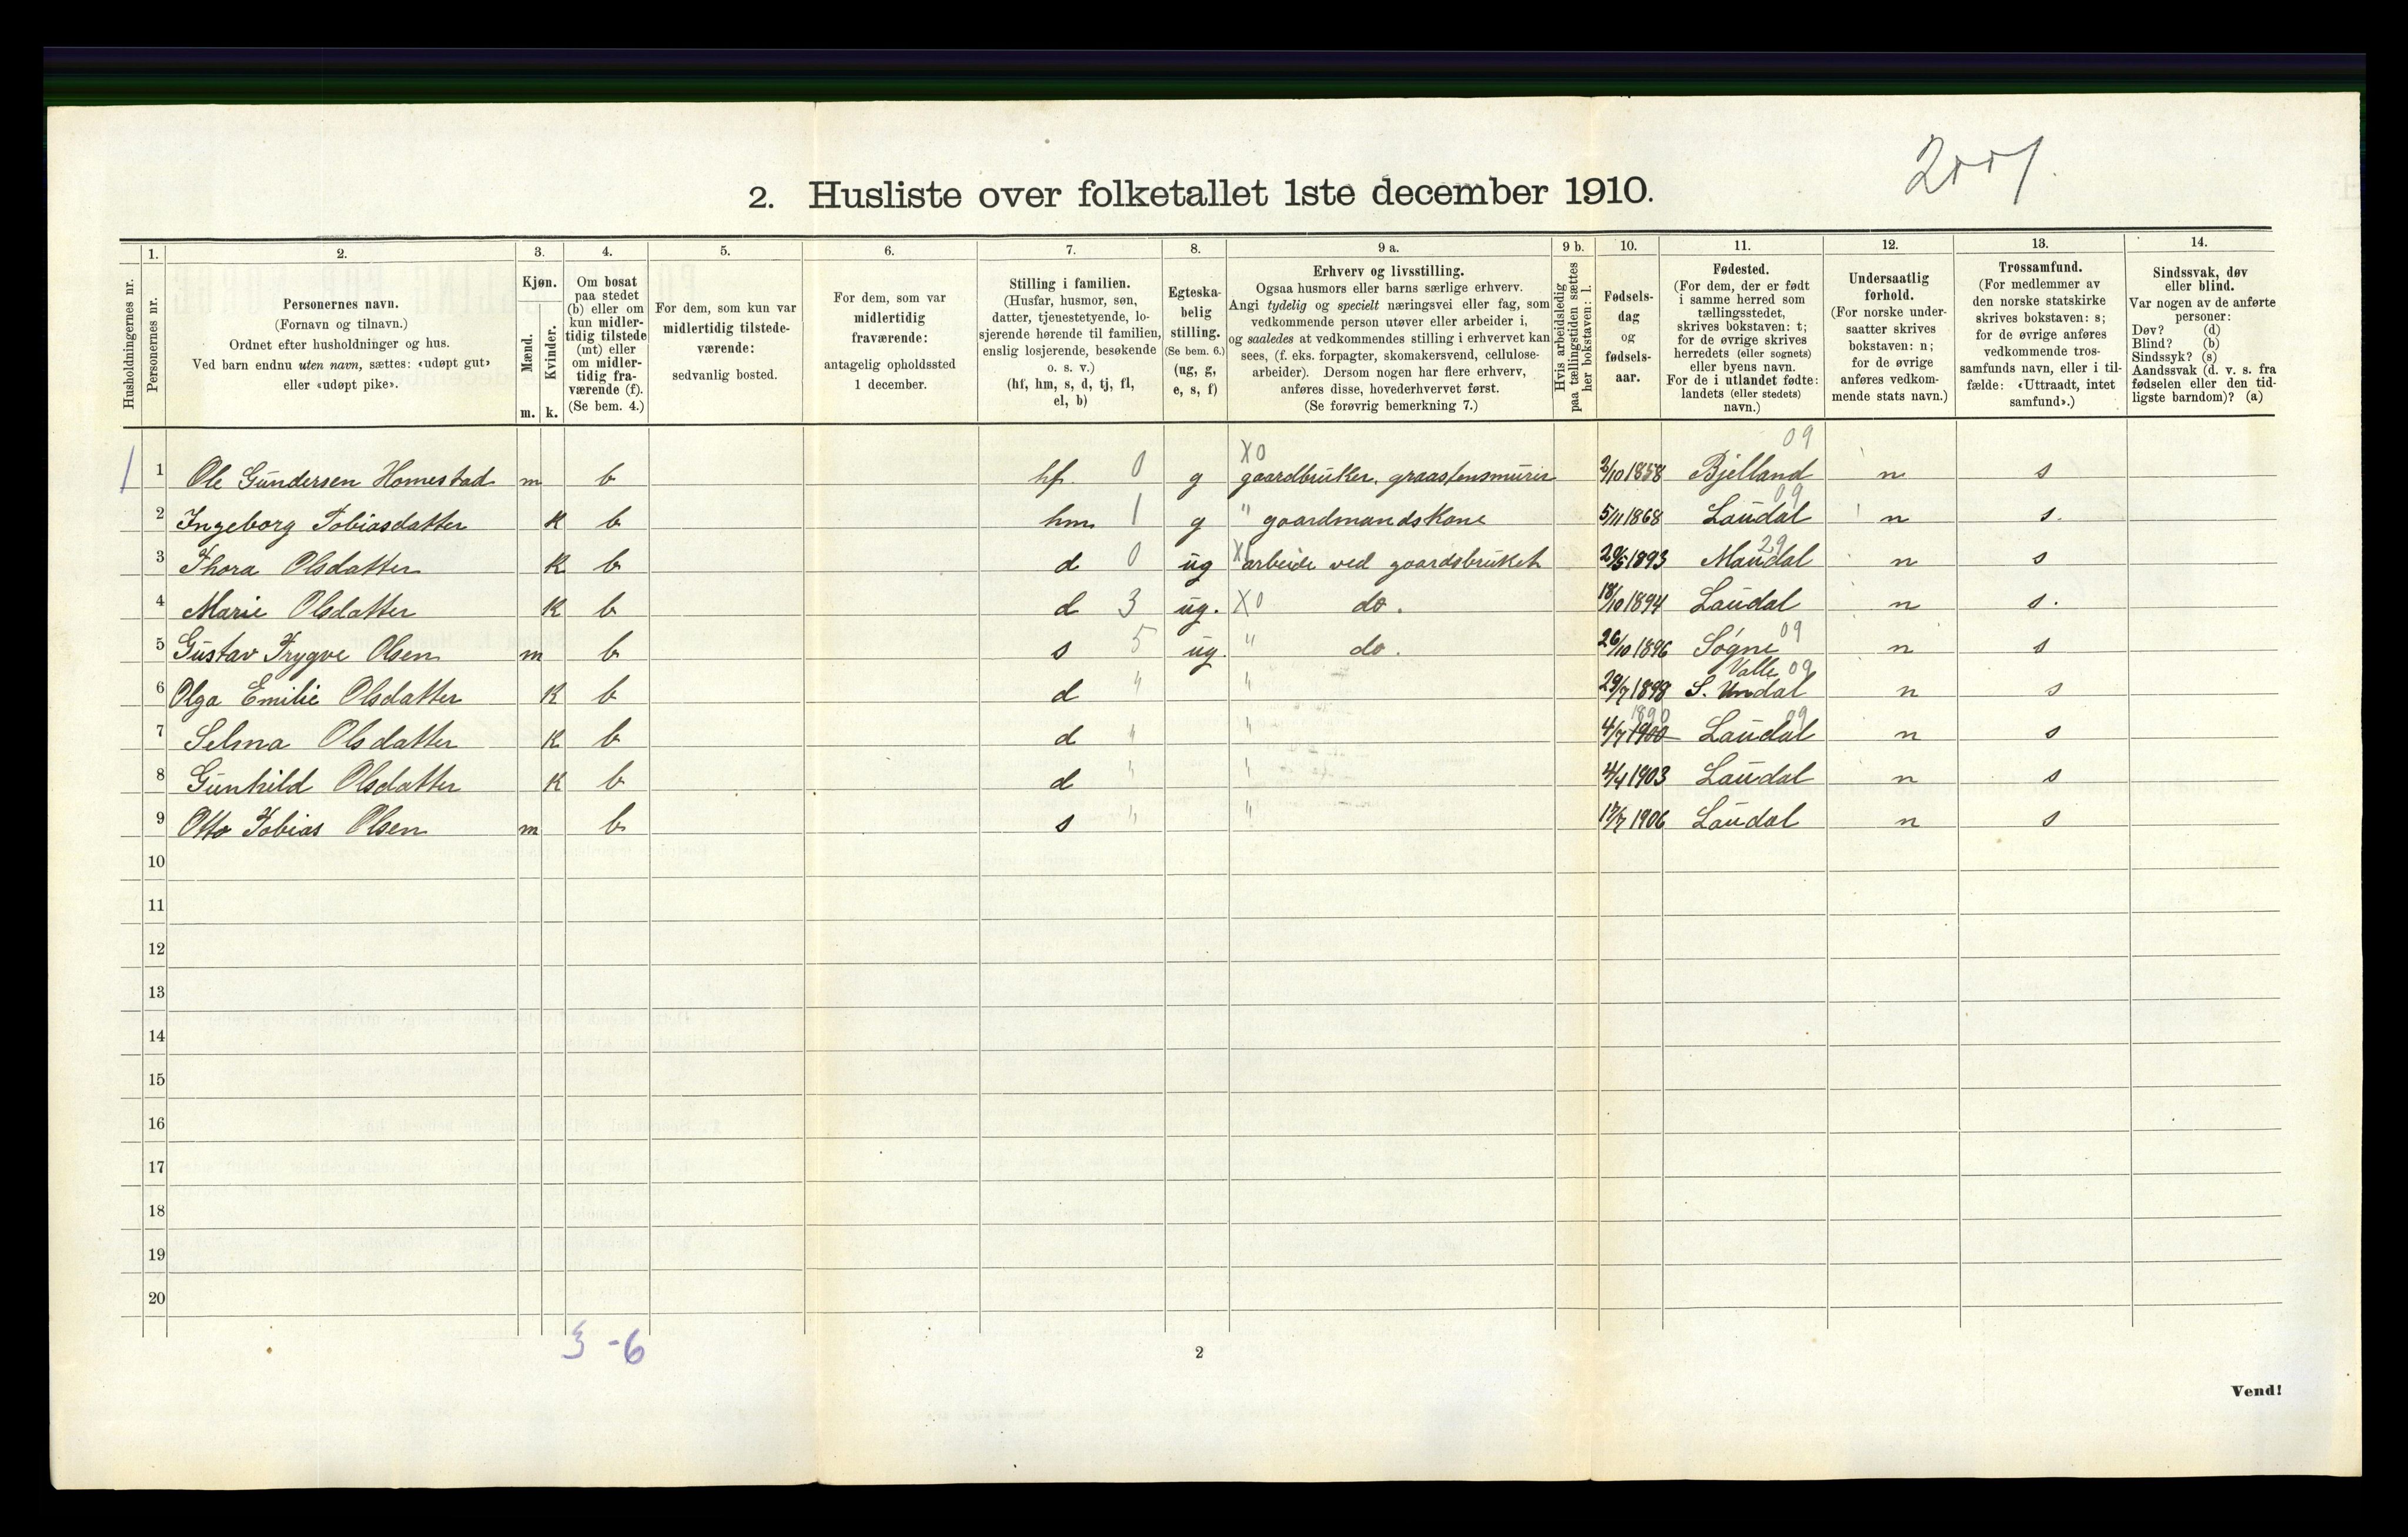 2. Husliste over folketallet 1ste december 1910.
1. 2. 3. 4. 5. 6. 7. 8. 9 a. 9 b. 10. 11. 12. 13. 14.
Husholdningernes nr.
Personernes nr.
Personernes navn.
(Fornavn og tilnavn.)
Ordnet efter husholdninger og hus.
Ved barn endnu uten navn, sættes: «udøpt gut»
eller «udøpt pike».
Kjøn.
Mænd.
Kvinder.
m. k.
Om bosat
paa stedet
(b) eller om
kun midler-
tidig tilstede
(mt) eller
om midler-
tidig fra-
værende (f).
(Se bem. 4.)
For dem, som kun var
midlertidig tilstede-
værende:
sedvanlig bosted.
For dem, som var
midlertidig
fraværende:
antagelig opholdssted
1 december.
Stilling i familien.
(Husfar, husmor, søn,
datter, tjenestetyende, lo-
sjerende hørende til familien,
enslig losjerende, besøkende
o. s. v.)
(hf, hm, s, d, tj, fl,
el, b)
Egteska-
belig
stilling.
(Se bem. 6.)
(ug, g,
e, s, f)
Erhverv og livsstilling.
Ogsaa husmors eller barns særlige erhverv.
Angi tydelig og specielt næringsvei eller fag, som
vedkommende person utøver eller arbeider i,
og saaledes at vedkommendes stilling i erhvervet kan
sees, (f. eks. forpagter, skomakersvend, cellulose-
arbeider). Dersom nogen har flere erhverv,
anføres disse, hovederhvervet først.
(Se forøvrig bemerkning 7.)
Hvis arbeidsledig
paa tællingstiden sættes
her bokstaven: l.
Fødsels-
dag
og
fødsels-
aar.
Fødested.
(For dem, der er født
i samme herred som
tællingsstedet,
skrives bokstaven: t;
for de øvrige skrives
herredets (eller sognets)
eller byens navn.
For de i utlandet fødte:
landets (eller stedets)
navn.)
Undersaatlig
forhold.
(For norske under-
saatter skrives
bokstaven: n;
for de øvrige
anføres vedkom-
mende stats navn.)
Trossamfund.
(For medlemmer av
den norske statskirke
skrives bokstaven: s;
for de øvrige anføres
vedkommende tros-
samfunds navn, eller i til-
fælde: «Uttraadt, intet
samfund».)
Sindssvak, døv
eller blind.
Var nogen av de anførte
personer:
Døv? (d)
Blind? (b)
Sindssyk? (s)
Aandssvak (d. v. s. fra
fødselen eller den tid-
ligste barndom)? (a)
X0 09
1 1 Ole Gundersen Homestad m b hf. 0 g gaardbruker, graastensmurer 2/10 1858 Bjelland n s
09
2 Ingeborg Tobiasdatter K b hm 1 g " gaardmandskone 5/11 1868 Laudal n s.
29
3 Thora Olsdatter K b d 0 ug arbeide ved gaardsbruket 1893 Mandal n s
4 Marie Olsdatter K b d 3 ug. X0 do. 18/10 1894 Laudal n s.
09
5 Gustav Trygve Olsen m b s 5 ug. " do. 26/10 1896 Søgne n s
Valle 09
6 Olga Emilie Olsdatter K b d " " 29/7 1898 S. Undal n s
1890 09
7 Selma Olsdatter K b d " " 4/7 1900 Laudal n s
8 Gunhild Olsdatter K b d " " 4/4 1903 Laudal n s
9 Otto Tobias Olsen m b s " " 17/7 1906 Laudal n s
10
11
12
13
14
15
16
17
18
19
20
3 - 6
2
Vend!